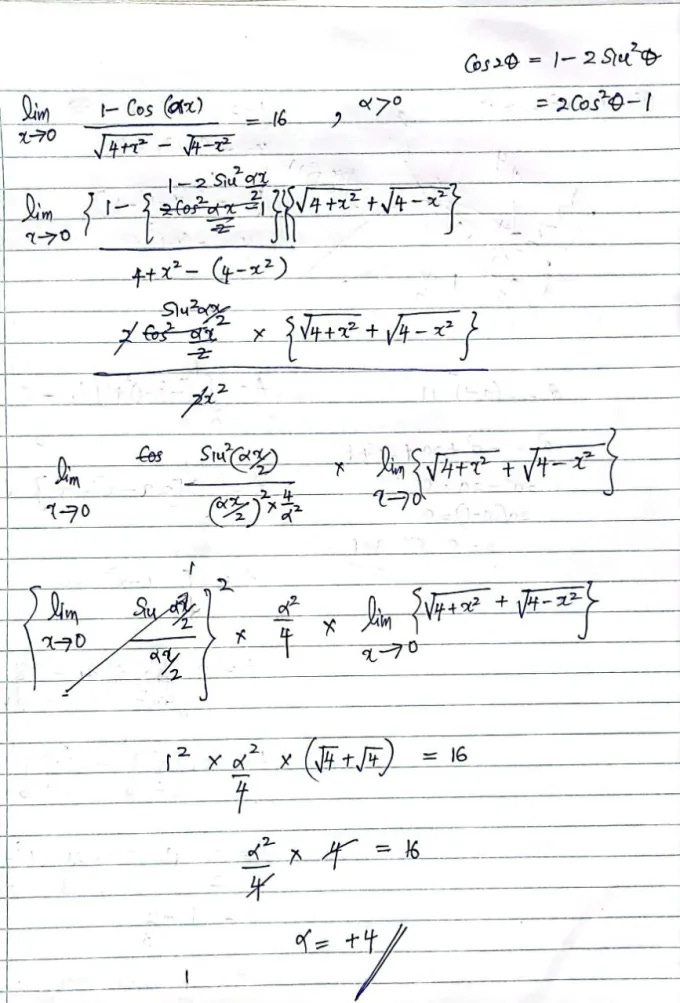 cos2θ = 1 − 2 Sin²θ
= 2Cos²θ − 1
lim x→0 (1 − Cos (αx)) / (√(4+x²) − √(4−x²)) = 16 , α>0
1 − 2 Sin² αx/2
lim x→0 { 1 − { 2Cos² αx/2 − 1 } } { √(4+x²) + √(4−x²) } / (4+x² − (4−x²))
Sin² αx/2
2 Cos² αx/2 × { √(4+x²) + √(4−x²) } / 2x²
lim x→0 Cos Sin²(αx/2) / ((αx/2)² × 4/α²) × lim x→0 { √(4+x²) + √(4−x²) }
1
{ lim x→0 Sin αx/2 / αx/2 }² × α²/4 × lim x→0 { √(4+x²) + √(4−x²) }
1² × α²/4 × (√4 + √4) = 16
α²/4 × 4 = 16
α = +4